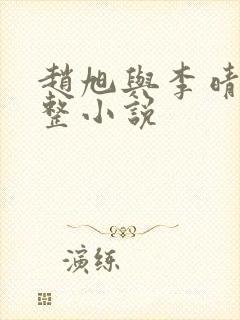 趙旭與李晴
整小説
演练